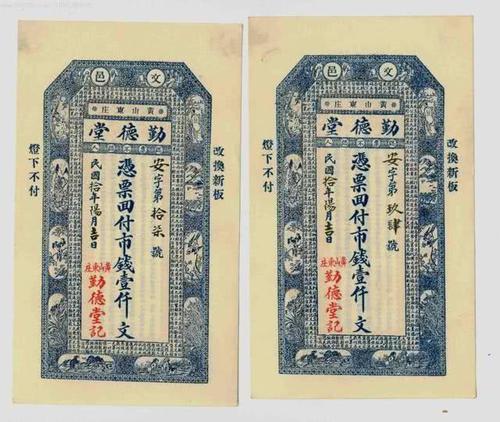 文邑
黃山東庄
勤德堂
認票不認人
改換新板
安字第拾柒號
憑票囬付市錢壹仟文
民國拾年陽月吉日
黃山東庄
勤德堂記
燈下不付
文邑
黃山東庄
勤德堂
認票不認人
改換新板
安字第玖肆號
憑票囬付市錢壹仟文
民國拾年陽月吉日
黃山東庄
勤德堂記
燈下不付